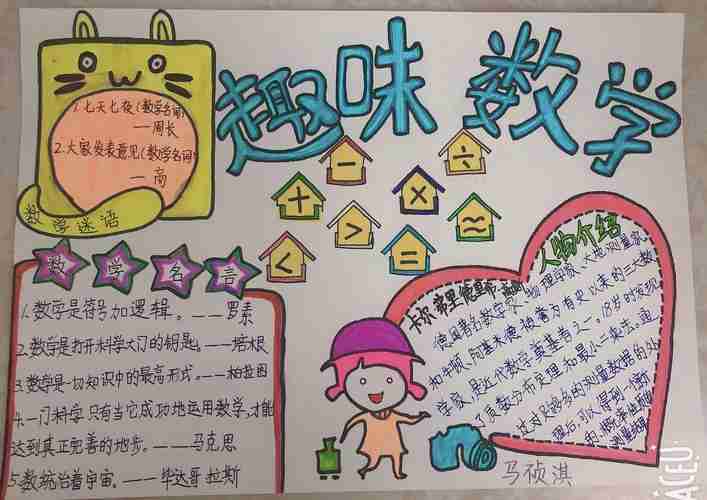 趣味数学
1.七天七夜(数学名词)
——周长
2.大家发表意见(数学名词)
——高
数学迷语
− ÷
+ ×
> ≈
< =
数学名言
1.数学是符号加逻辑。——罗素
2.数学是打开科学大门的钥匙。——培根
3.数学是一切知识中的最高形式。——柏拉图
4.一门科学只有当它成功地运用数学,才能
达到真正完善的地步。——马克思
5.数统治着宇宙。——毕达哥拉斯
人物介绍
卡尔·弗里德里希·高斯
德国著名数学家、物理学家、大地测量家
和牛顿、阿基米德被誉为有史以来的三大数
学家,是近代数学奠基者之一,18岁的发现
了质数分布定理和最小二乘法。通
过对足够多的测量数据的处
理后,可以得到一个新
马祯淇
ACEU